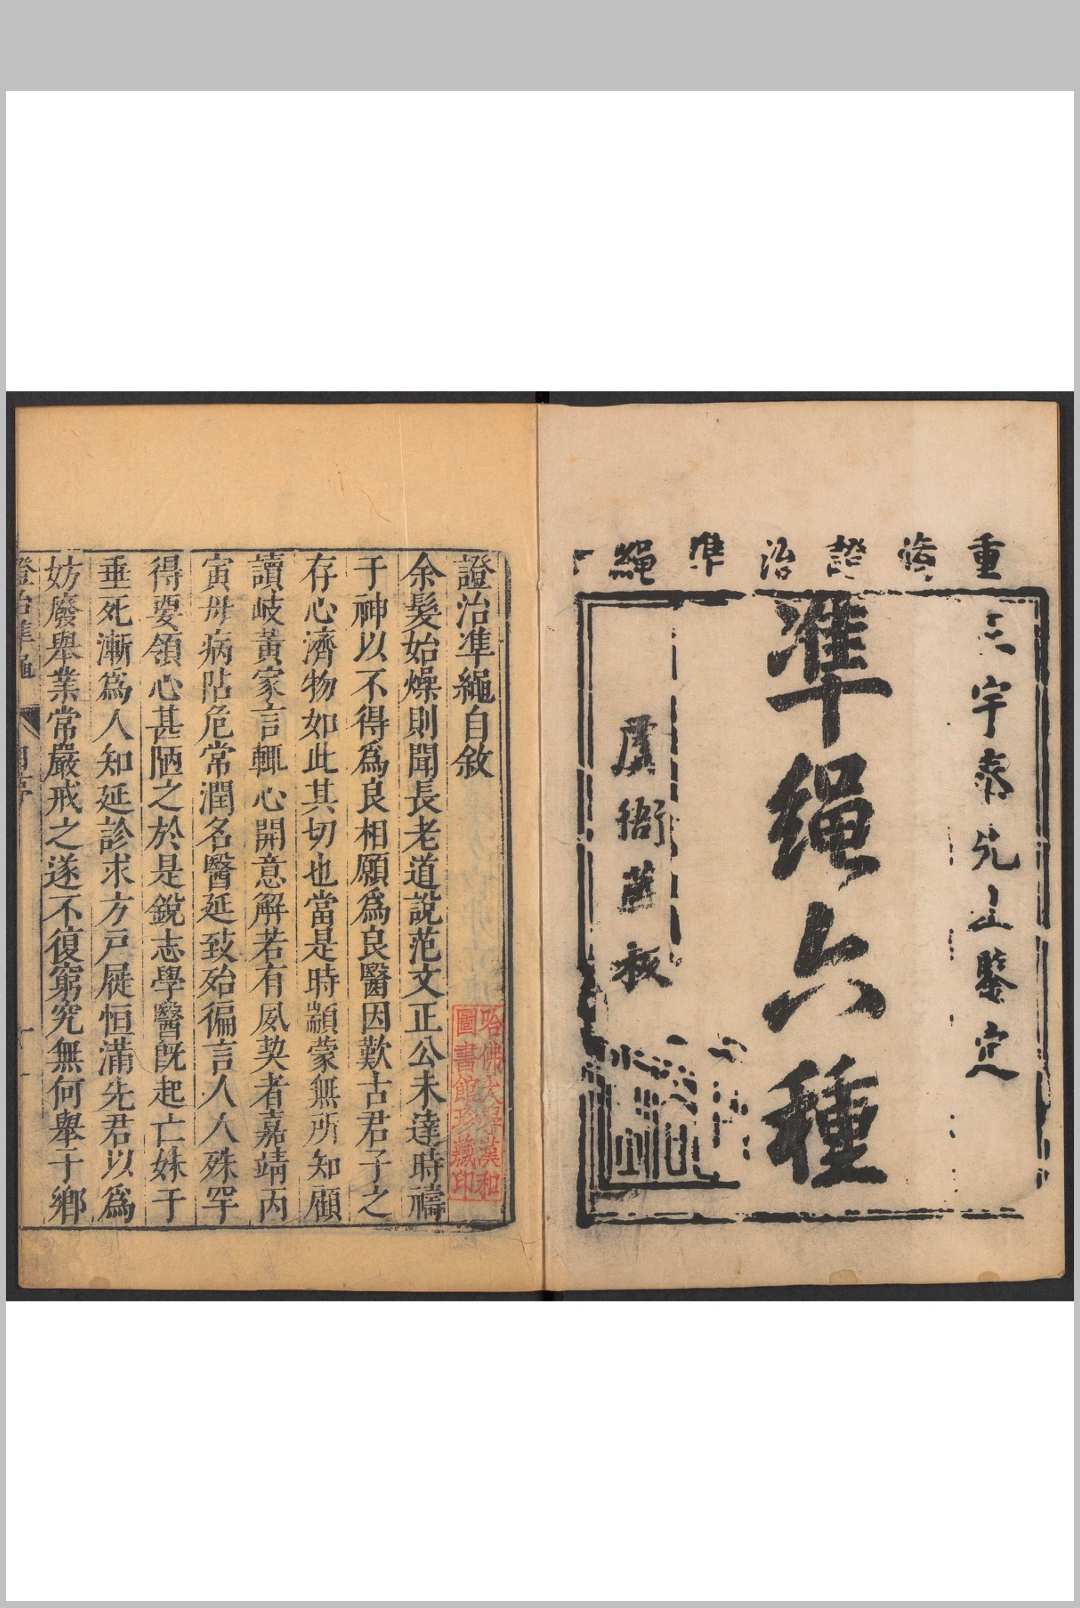 重 治準繩
宇泰先生鑒定
準繩六種
虞衙藏板
證治準繩自敘
余髮始燥則聞長老道說范文正公未達時禱
于神以不得爲良相願爲良醫因歎古君子之
存心濟物如此其切也當是時顓蒙無所知顧
讀岐黃家言輒心開意解若有夙契者嘉靖丙
寅母病阽危常潤名醫延致殆徧言人人殊罕
得要領心甚陋之於是銳志學醫旣起亡妹于
垂死漸爲人知延診求方戶屨恒滿先君以爲
妨廢舉業常嚴戒之遂不復窮究無何舉于鄉
證治準繩
自序
哈佛大學漢和
圖書館珍藏印